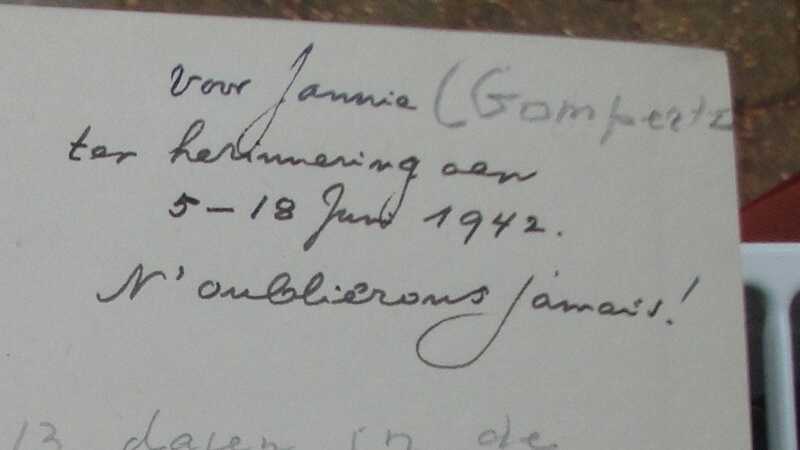 Voor Jannie (Gompertz
ter herinnering aan
5-18 Juni 1942.
N'oubliërons jamais!
13 dagen in de